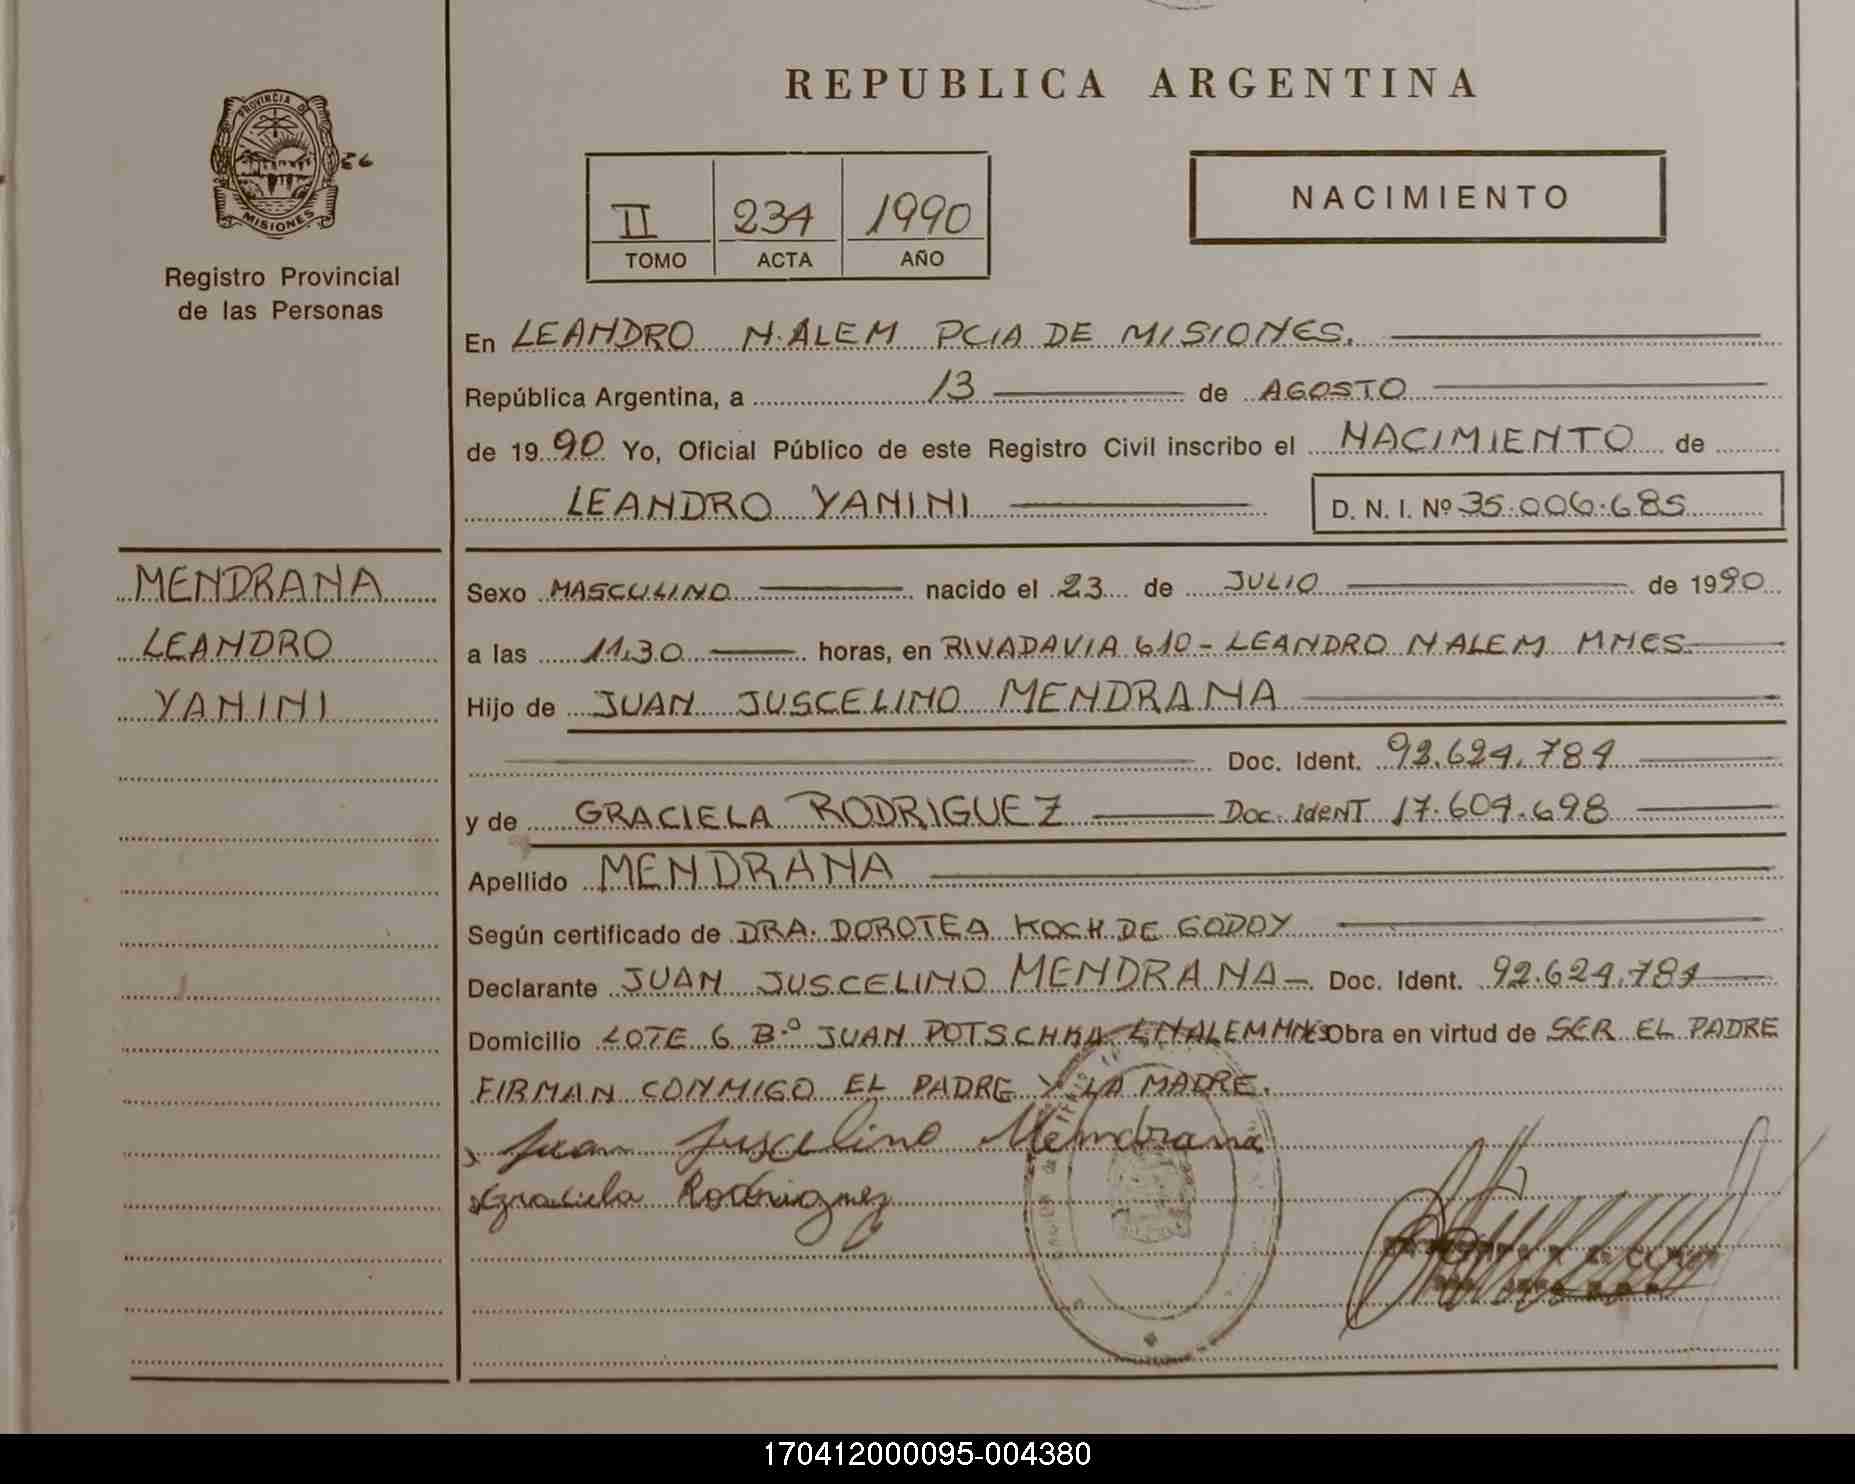 REPUBLICA ARGENTINA
PROVINCIA DE
MISIONES
Registro Provincial
de las Personas
II 234 1990
TOMO ACTA AÑO
NACIMIENTO
En LEANDRO N. ALEM PCIA DE MISIONES.
República Argentina, a 13 de AGOSTO
de 1990 Yo, Oficial Público de este Registro Civil inscribo el NACIMIENTO de
LEANDRO YANINI D. N. I. Nº 35.006.685
MENDRANA
LEANDRO
YANINI
Sexo MASCULINO nacido el 23 de JULIO de 1990
a las 11,30 horas, en RIVADAVIA 610 - LEANDRO N ALEM MNES
Hijo de JUAN JUSCELINO MENDRANA
Doc. Ident. 92.624.784
y de GRACIELA RODRIGUEZ Doc. Ident 17.609.698
Apellido MENDRANA
Según certificado de DRA. DOROTEA KOCH DE GODOY
Declarante JUAN JUSCELINO MENDRANA - Doc. Ident. 92.624.784
Domicilio LOTE 6 Bº JUAN POTSCHKA LNALEM MNES Obra en virtud de SER EL PADRE
FIRMAN CONMIGO EL PADRE Y LA MADRE.
Juan Juscelino Mendrana
Graciela Rodriguez
170412000095-004380